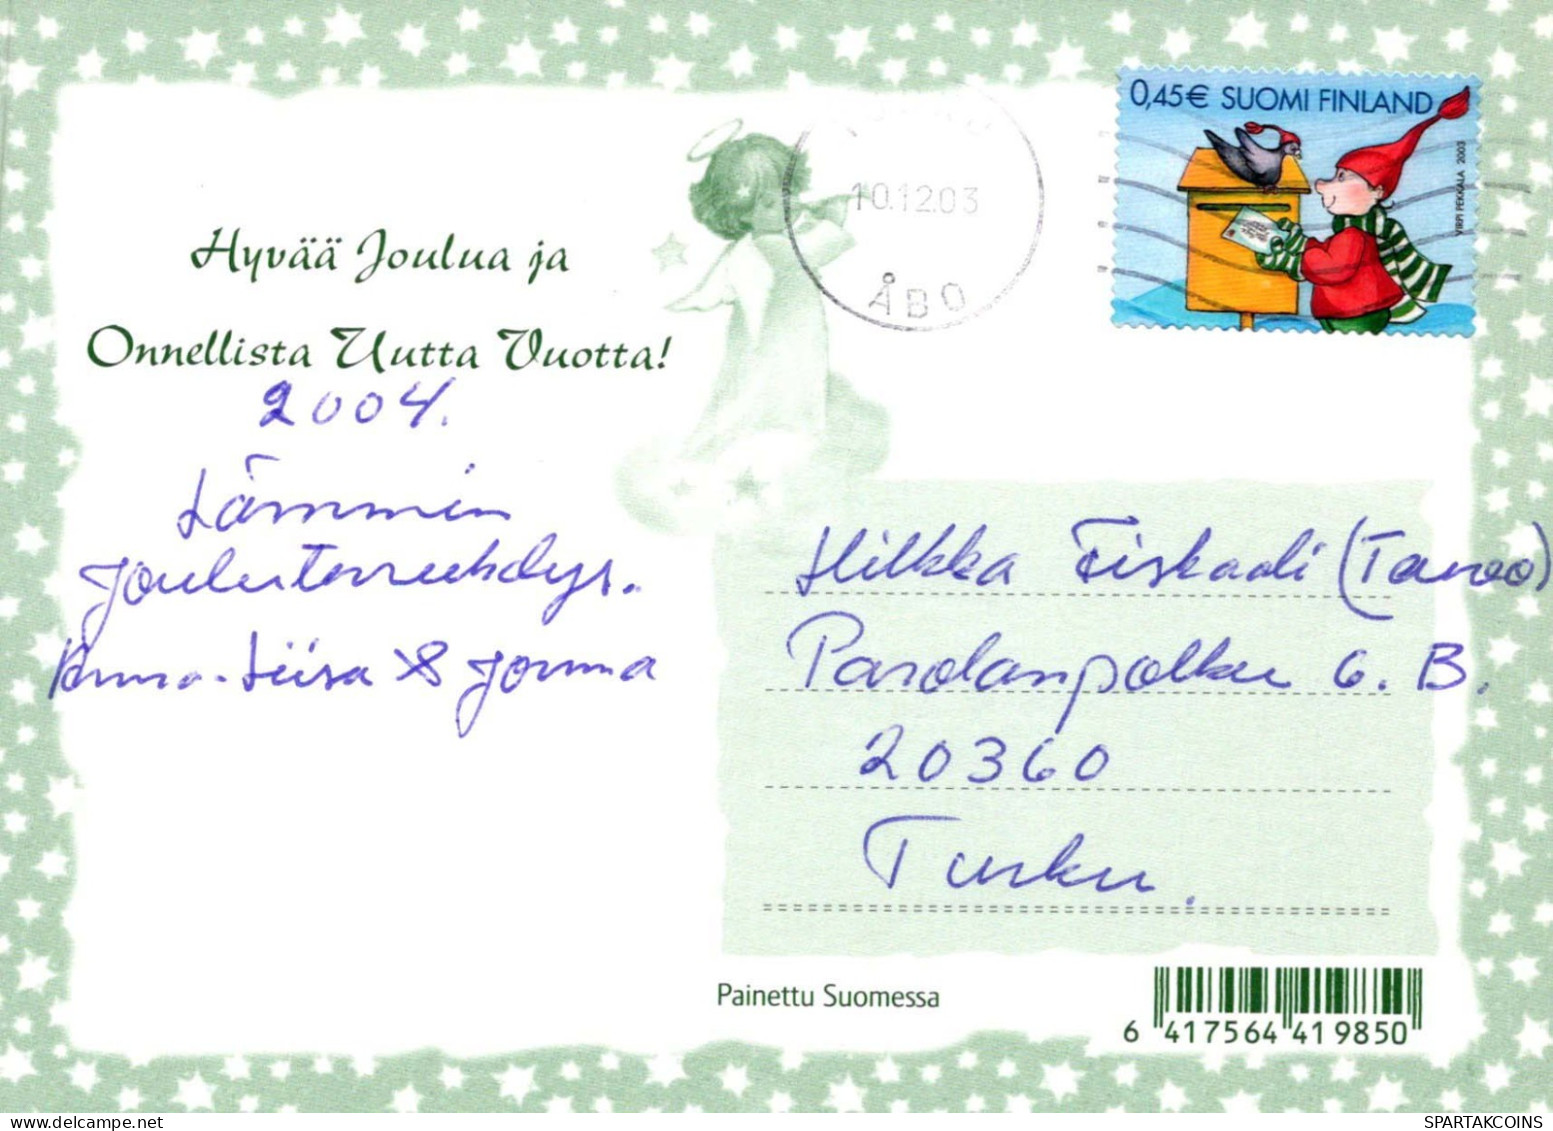 0,45€ SUOMI FINLAND
VIRPI PEKKALA 2003
10.12.03
ÅBO
Hyvää Joulua ja
Onnellista Uutta Vuotta!
2004.
Lämmin
Joulutervehdys.
Anna-Liisa & Jorma
Hilkka Fiskaali (Tarvo)
Pardanpolku 6. B.
20360
Turku.
Painettu Suomessa
6 417564 419850
SPARTAKCOINS
delcampe.net